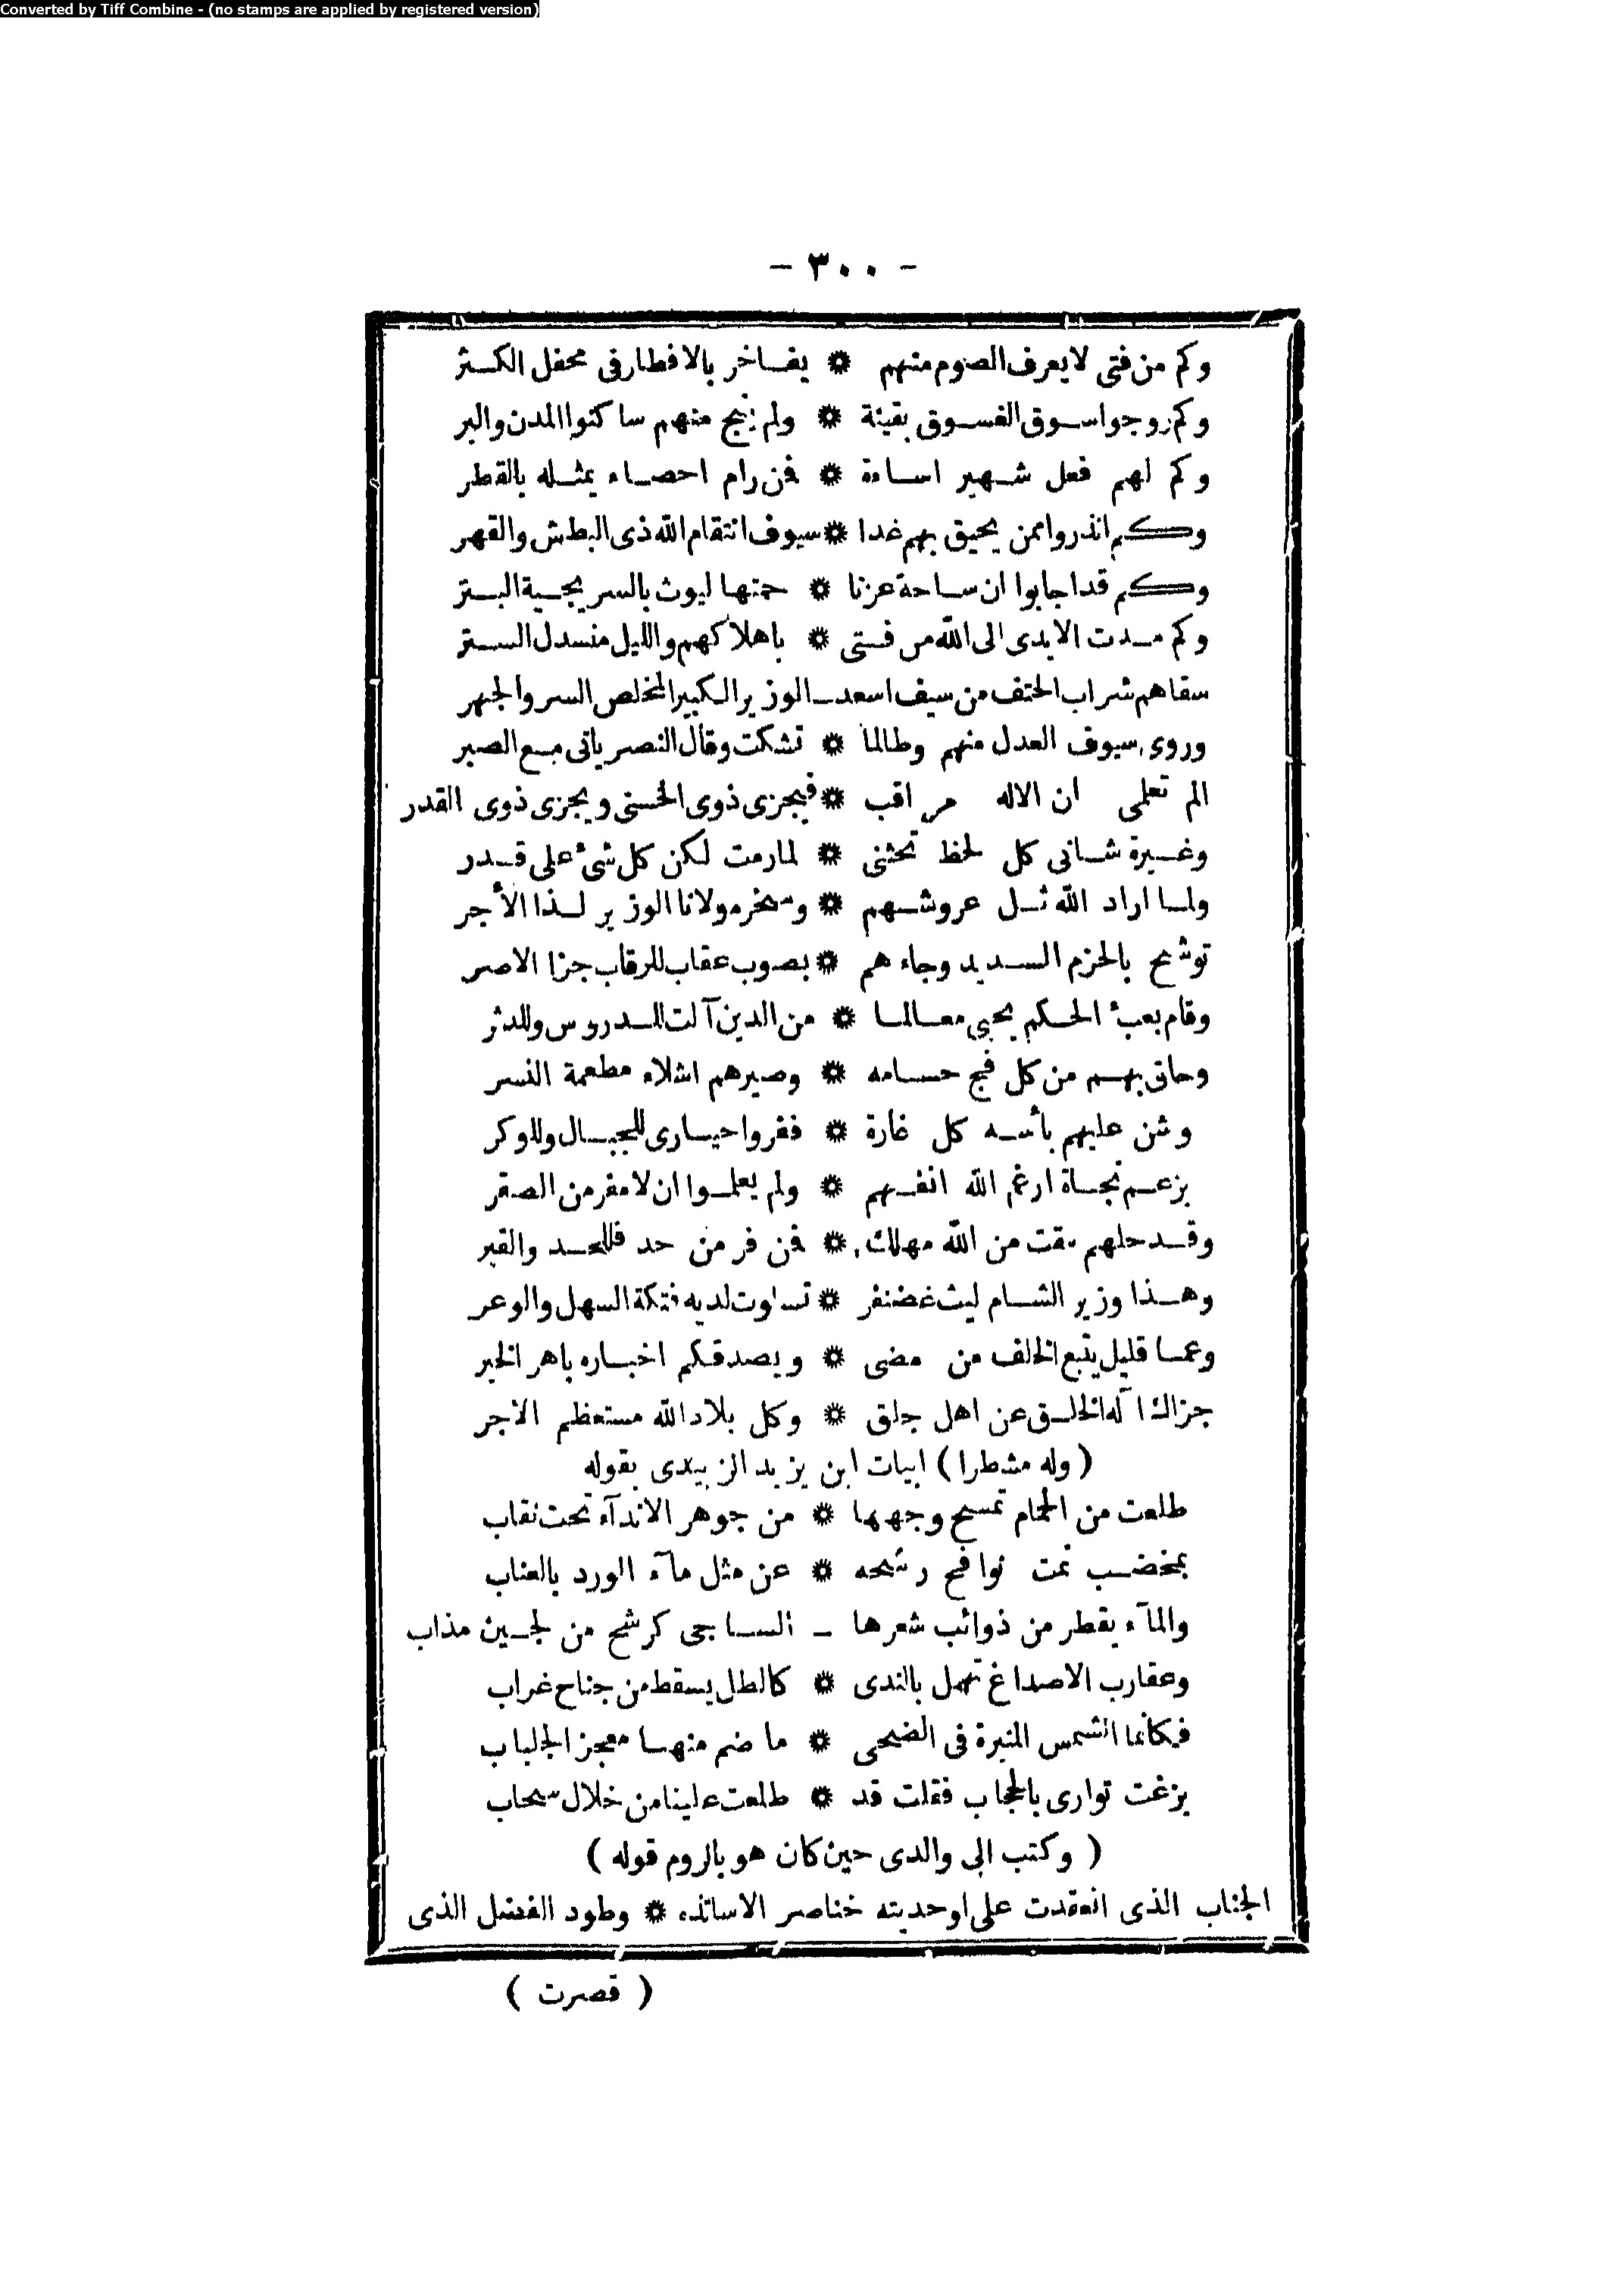 Converted by Tiff Combine - (no stamps are applied by registered version)
- ٣٠٠ -
وكم من فتى لا يعرف الصوم منهم * يفاخر بالافطار فى محفل الكثر
وكم روجوا سوق الفسوق بقينة * ولم ينج منهم ساكنوا المدن والبر
وكم لهم فعل شهير اساءة * فمن رام احصاء يمثله بالقطر
وكم انذروا ممن يحيق بهم غدا * سيوف انتقام الله ذى البطش والقهر
وكم قد اجابوا ان ساحة عزنا * حمتها ليوث بالسريجية البتر
وكم مدت الايدى الى الله من فتى * باهلاكهم والليل منسدل الستر
سقاهم شراب الحتف من سيف اسعد ـ الوزير الكبير المخلص السر والجهر
وروى سيوف العدل منهم وطالما * تشكت وقال النصر ياتى مع الصبر
الم تعلمى ان الاله مراقب * فيجزى ذوى الحسنى ويجزى ذوى الغدر
وغيرة شانى كل لحظ تحثنى * لما رمت لكن كل شئ على قدر
ولما اراد الله ثل عروشهم * وسخر مولانا الوزير لذا الأجر
توشح بالحزم السديد وجاءهم * بصوب عقاب للرقاب جزا الاصر
وقام بعبء الحكم يحيى معالما * من الدين آلت للدروس وللدثر
وحاق بهم من كل فج حسامه * وصيرهم اشلاء مطعمة النسر
وشن عليهم بأسه كل غارة * ففروا حيارى للجبال وللوكر
بزعم نجاة ارغم الله انفهم * ولم يعلموا ان لا مفر من الصقر
وقد حلهم مقت من الله مهلك * فمن فر من حد فللحد والقبر
وهذا وزير الشام ليث غضنفر * تساوت لديه فتكة السهل والوعر
وعما قليل يتبع الخالف من مضى * ويصدقكم اخباره باهر الخبر
جزاك اله الخلق عن اهل جلق * وكل بلاد الله مستعظم الاجر
( وله مشطرا ) ابيات ابن يزيد الزبيدى بقوله
طلعت من الحمام تمسح وجهها * من جوهر الاندآء تحت نقاب
بمخضب نمت نوافح رشحه * عن مثل مآء الورد بالعناب
والمآء يقطر من ذوائب شعرها ـ الساجى كرشح من لجين مذاب
وعقارب الاصداغ تهمل بالندى * كالطل يسقط من جناح غراب
فكأنما الشمس المنيرة فى الضحى * ما ضم منها معجز الجلباب
بزغت توارى بالحجاب فقلت قد * طلعت علينا من خلال سحاب
( وكتب الى والدى حين كان هو بالروم قوله )
الجناب الذى انعقدت على اوحديته خناصر الاساتذه * وطود الفضل الذى
( قصرت )